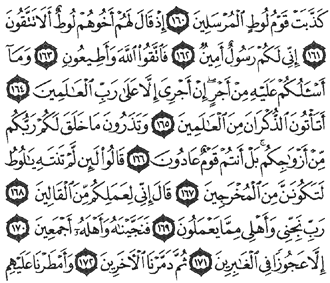 كَذَّبَتْ قَوْمُ لُوطٍ ٱلْمُرْسَلِينَ ١٦٠ إِذْ قَالَ لَهُمْ أَخُوهُمْ لُوطٌ أَلَا تَتَّقُونَ
١٦١ إِنِّى لَكُمْ رَسُولٌ أَمِينٌ ١٦٢ فَٱتَّقُوا۟ ٱللَّهَ وَأَطِيعُونِ ١٦٣ وَمَآ
أَسْـَٔلُكُمْ عَلَيْهِ مِنْ أَجْرٍ ۖ إِنْ أَجْرِىَ إِلَّا عَلَىٰ رَبِّ ٱلْعَـٰلَمِينَ ١٦٤
أَتَأْتُونَ ٱلذُّكْرَانَ مِنَ ٱلْعَـٰلَمِينَ ١٦٥ وَتَذَرُونَ مَا خَلَقَ لَكُمْ رَبُّكُم
مِّنْ أَزْوَٰجِكُم ۚ بَلْ أَنتُمْ قَوْمٌ عَادُونَ ١٦٦ قَالُوا۟ لَئِن لَّمْ تَنتَهِ يَـٰلُوطُ
لَتَكُونَنَّ مِنَ ٱلْمُخْرَجِينَ ١٦٧ قَالَ إِنِّى لِعَمَلِكُم مِّنَ ٱلْقَالِينَ ١٦٨
رَبِّ نَجِّنِى وَأَهْلِى مِمَّا يَعْمَلُونَ ١٦٩ فَنَجَّيْنَـٰهُ وَأَهْلَهُۥٓ أَجْمَعِينَ ١٧٠
إِلَّا عَجُوزًا فِى ٱلْغَـٰبِرِينَ ١٧١ ثُمَّ دَمَّرْنَا ٱلْـَٔاخَرِينَ ١٧٢ وَأَمْطَرْنَا عَلَيْهِم